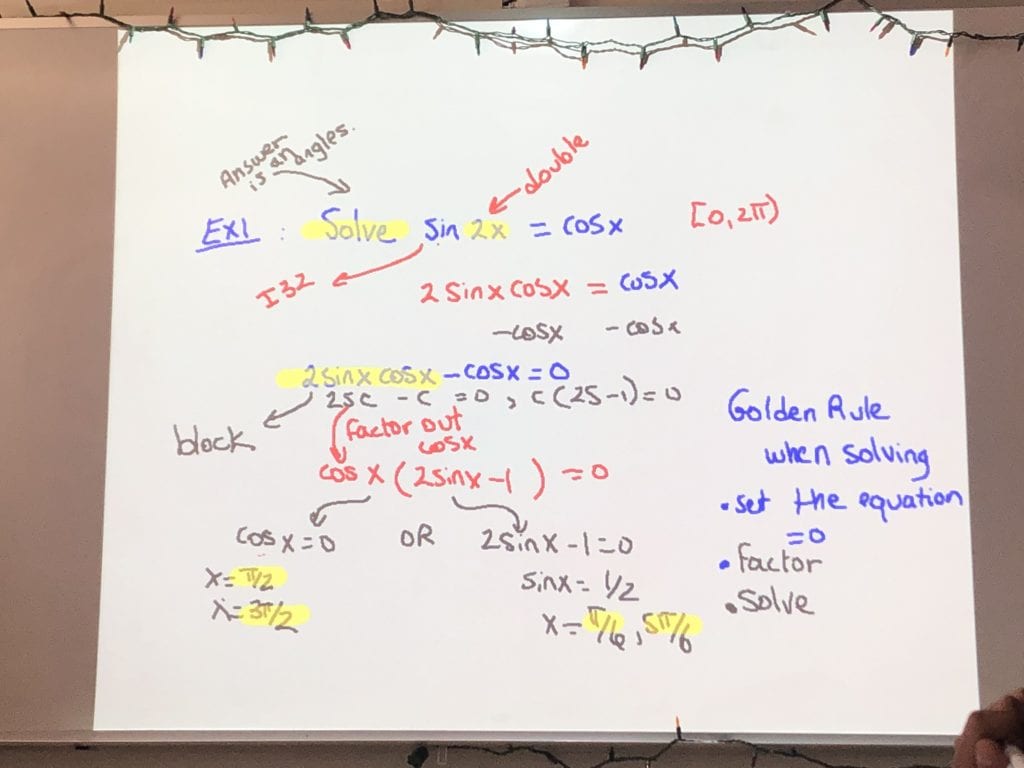 Answer
is an angles.
double
EX1 : Solve sin 2x = cosx [0, 2π)
I32
2 sinx cosx = cosx
-cosx -cosx
2sinx cosx - cosx = 0
2SC - C = 0 , C(2S-1) = 0
block
factor out
cosx
cos x (2sinx - 1) = 0
cos x = 0 OR 2sinx - 1 = 0
x = π/2
x = 3π/2
sinx = 1/2
x = π/6 , 5π/6
Golden Rule
when solving
• set the equation
= 0
• factor
• Solve